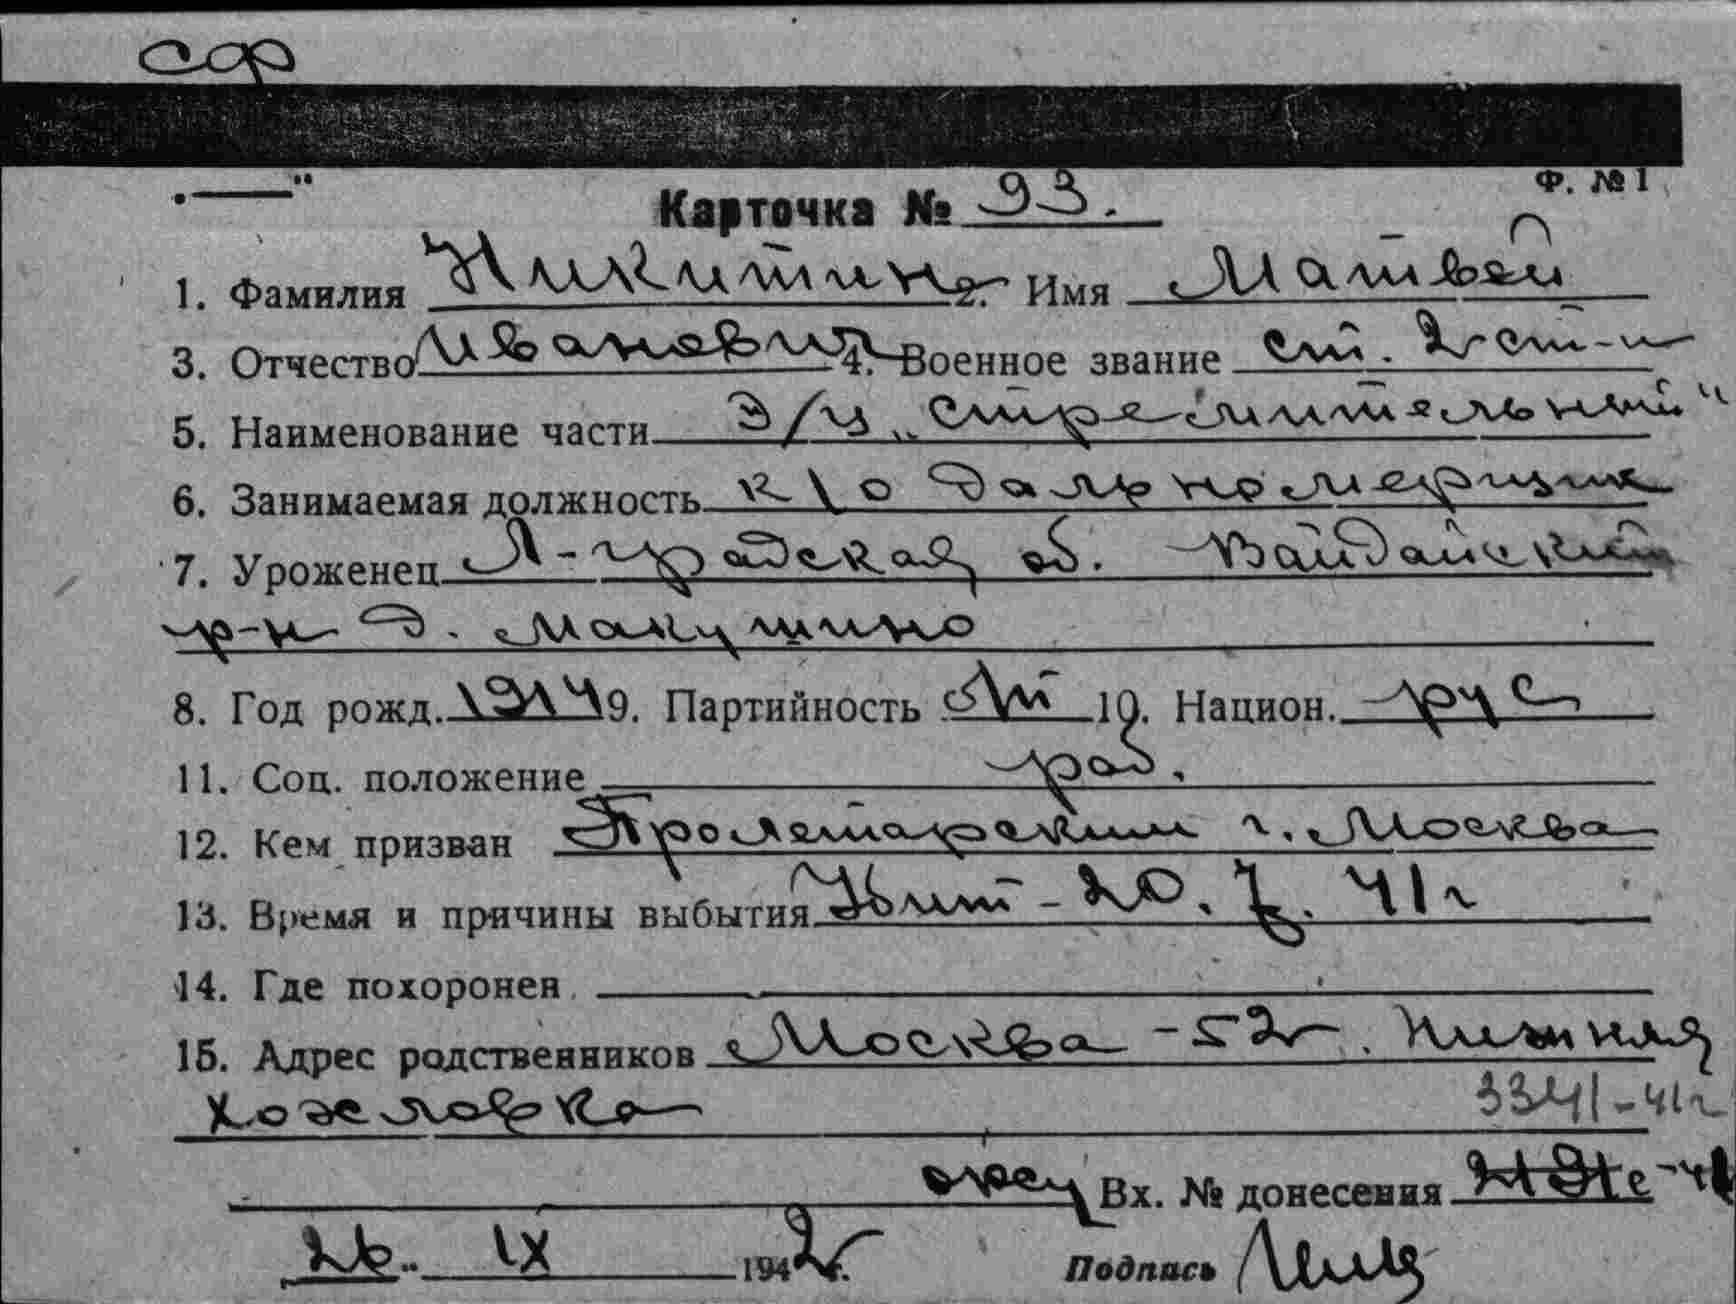 сер
Ф. № 1
Карточка № 93.
1. Фамилия Никитин 2. Имя Матвей
3. Отчество Иванович 4. Военное звание ст. 2 ст-и
5. Наименование части Э/м „Стремительный"
6. Занимаемая должность к/о дальномерщик
7. Уроженец Л-градская об.
р-н д.
8. Год рожд. 1914 9. Партийность б/п 10. Национ. рус
11. Соц. положение раб.
12. Кем призван Пролетарским г. Москва
13. Время и причины выбытия Убит - 20.7.41г
14. Где похоронен
15. Адрес родственников Москва
3341-41г
Вх. № донесения
26. IX 1942г.
Подпись